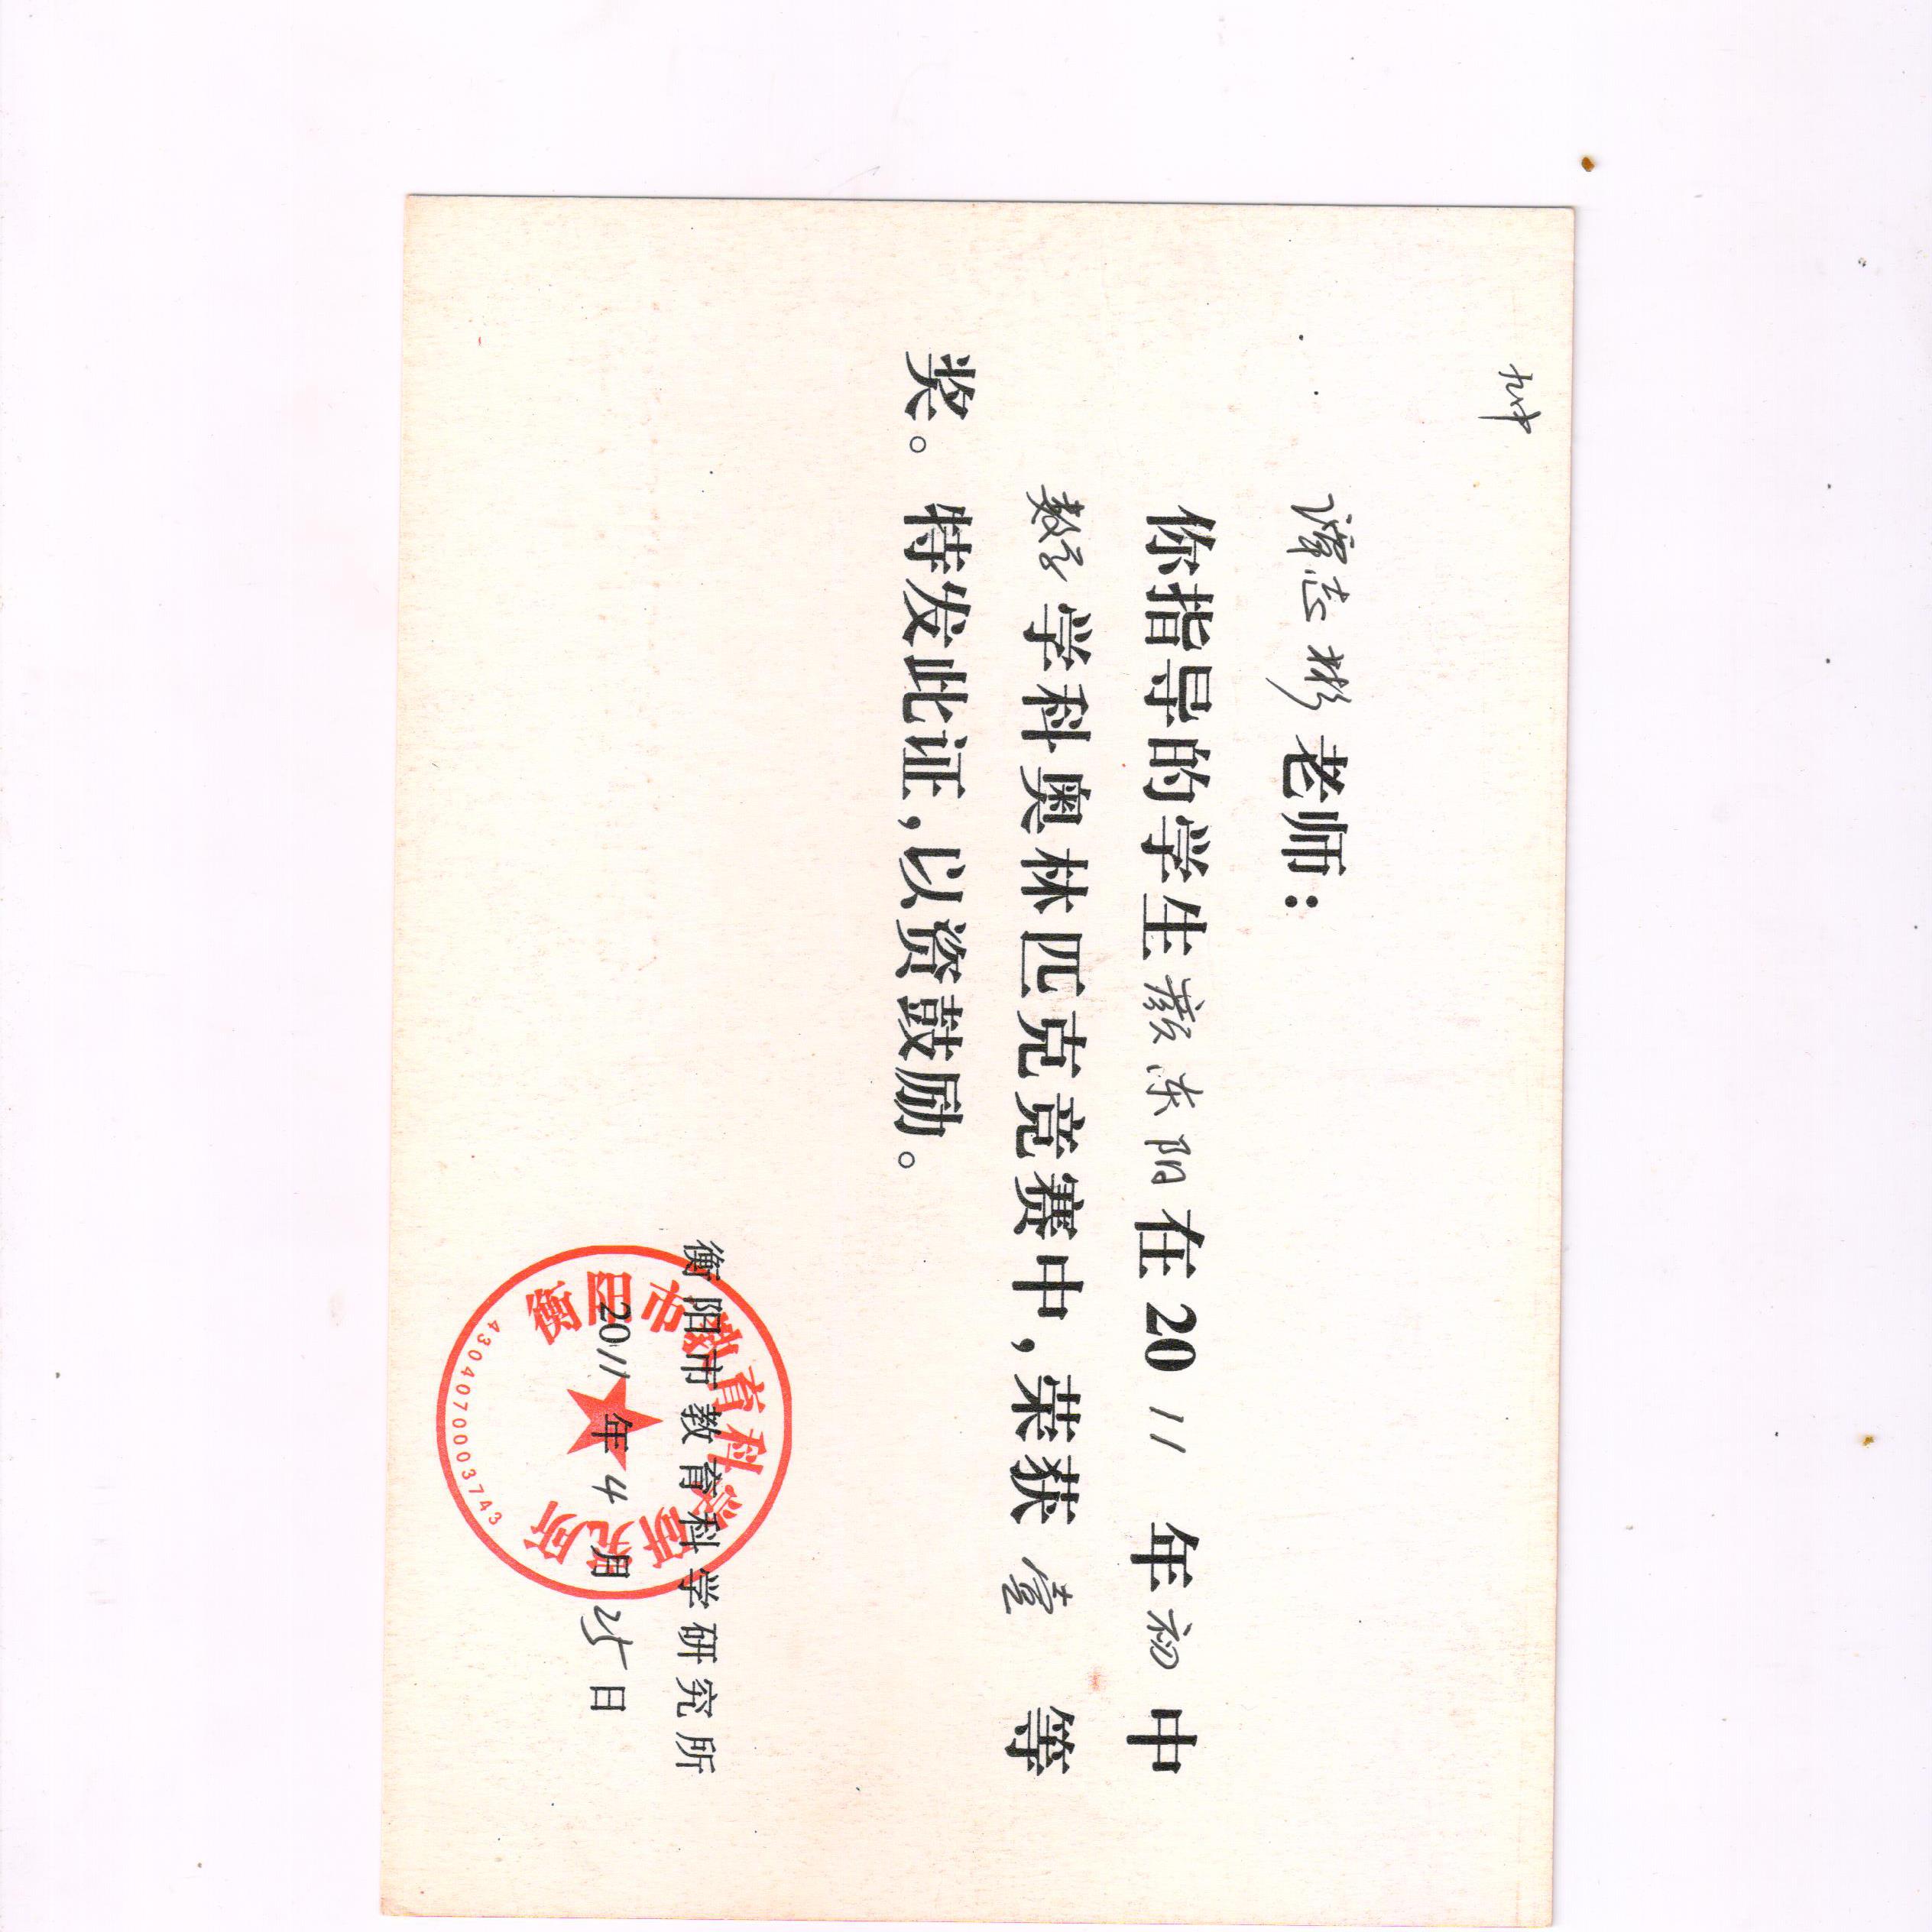 九中
谭志彬老师：
你指导的学生颜东阳在2011年初中
数学学科奥林匹克竞赛中，荣获壹等
奖。特发此证，以资鼓励。
衡阳市教育科学研究所
2011年4月25日
衡阳市教育科学研究所
4304070003743